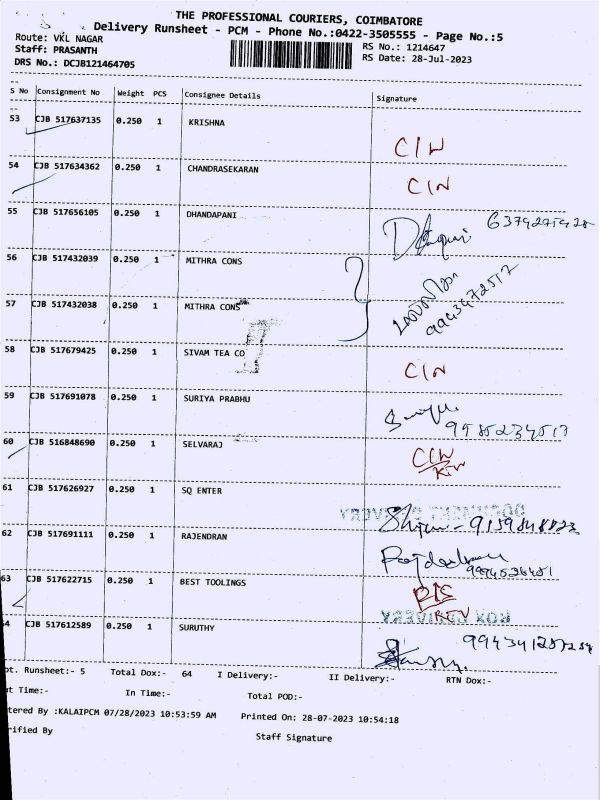 THE PROFESSIONAL COURIERS, COIMBATORE
Delivery Runsheet - PCM - Phone No.:0422-3505555 - Page No.:5
Route: VKL NAGAR
RS No.: 1214647
Staff: PRASANTH
RS Date: 28-Jul-2023
DRS No.: DCJB121464705
S No Consignment No Weight PCS Consignee Details Signature
53 CJB 517637135 0.250 1 KRISHNA
C/N
54 CJB 517634362 0.250 1 CHANDRASEKARAN
C/N
55 CJB 517656105 0.250 1 DHANDAPANI
56 CJB 517432039 0.250 1 MITHRA CONS
9943472517
57 CJB 517432038 0.250 1 MITHRA CONS
58 CJB 517679425 0.250 1 SIVAM TEA CO
C/N
59 CJB 517691078 0.250 1 SURIYA PRABHU
60 CJB 516848690 0.250 1 SELVARAJ
C/N
61 CJB 517626927 0.250 1 SQ ENTER
DOCUMENT DELIVERY
62 CJB 517691111 0.250 1 RAJENDRAN
63 CJB 517622715 0.250 1 BEST TOOLINGS
BOX DELIVERY
4 CJB 517612589 0.250 1 SURUTHY
ot. Runsheet:- 5 Total Dox:- 64 I Delivery:- II Delivery:- RTN Dox:-
ut Time:- In Time:- Total POD:-
tered By :KALAIPCM 07/28/2023 10:53:59 AM Printed On: 28-07-2023 10:54:18
rified By Staff Signature